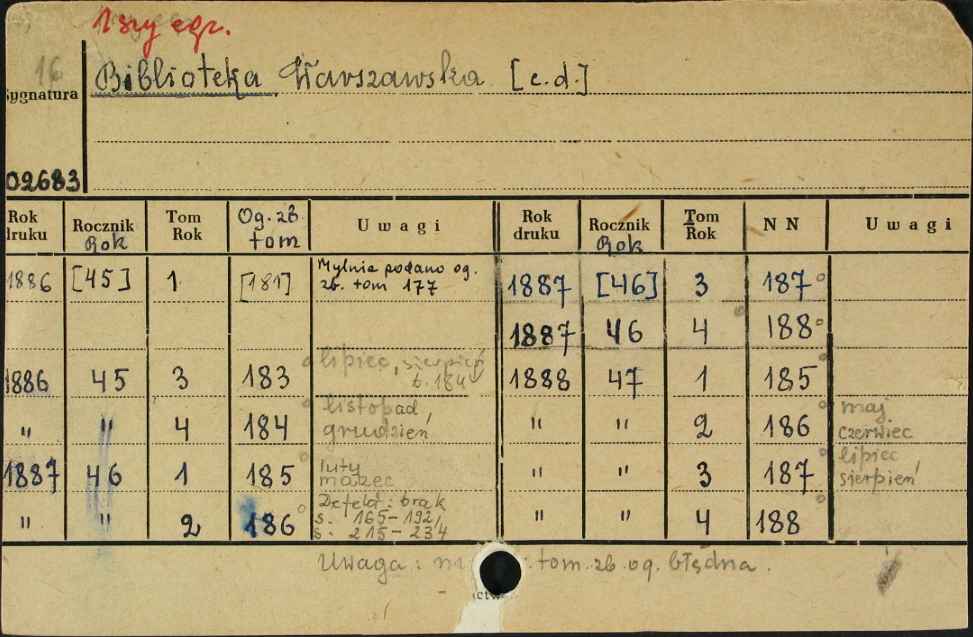 1szy egz.
16
Biblioteka Warszawska [c.d.]
Sygnatura
02683
Rok druku Rocznik Rok Tom Rok Og. zb. tom Uwagi Rok druku Rocznik Rok Tom Rok NN Uwagi
1886 [45] 1 [181] Mylnie podano og. 1887 [46] 3 187
zb. tom 177
1887 46 4 188
1886 45 3 183 lipiec, sierpień 1888 47 1 185
t. 184
" " 4 184 listopad, " " 2 186 maj
grudzień czerwiec
1887 46 1 185 luty " " 3 187 lipiec
marzec sierpień
" " 2 186 Defekt: brak " " 4 188
s. 165-192,
s. 215-234
Uwaga: tom zb. og. błędna.